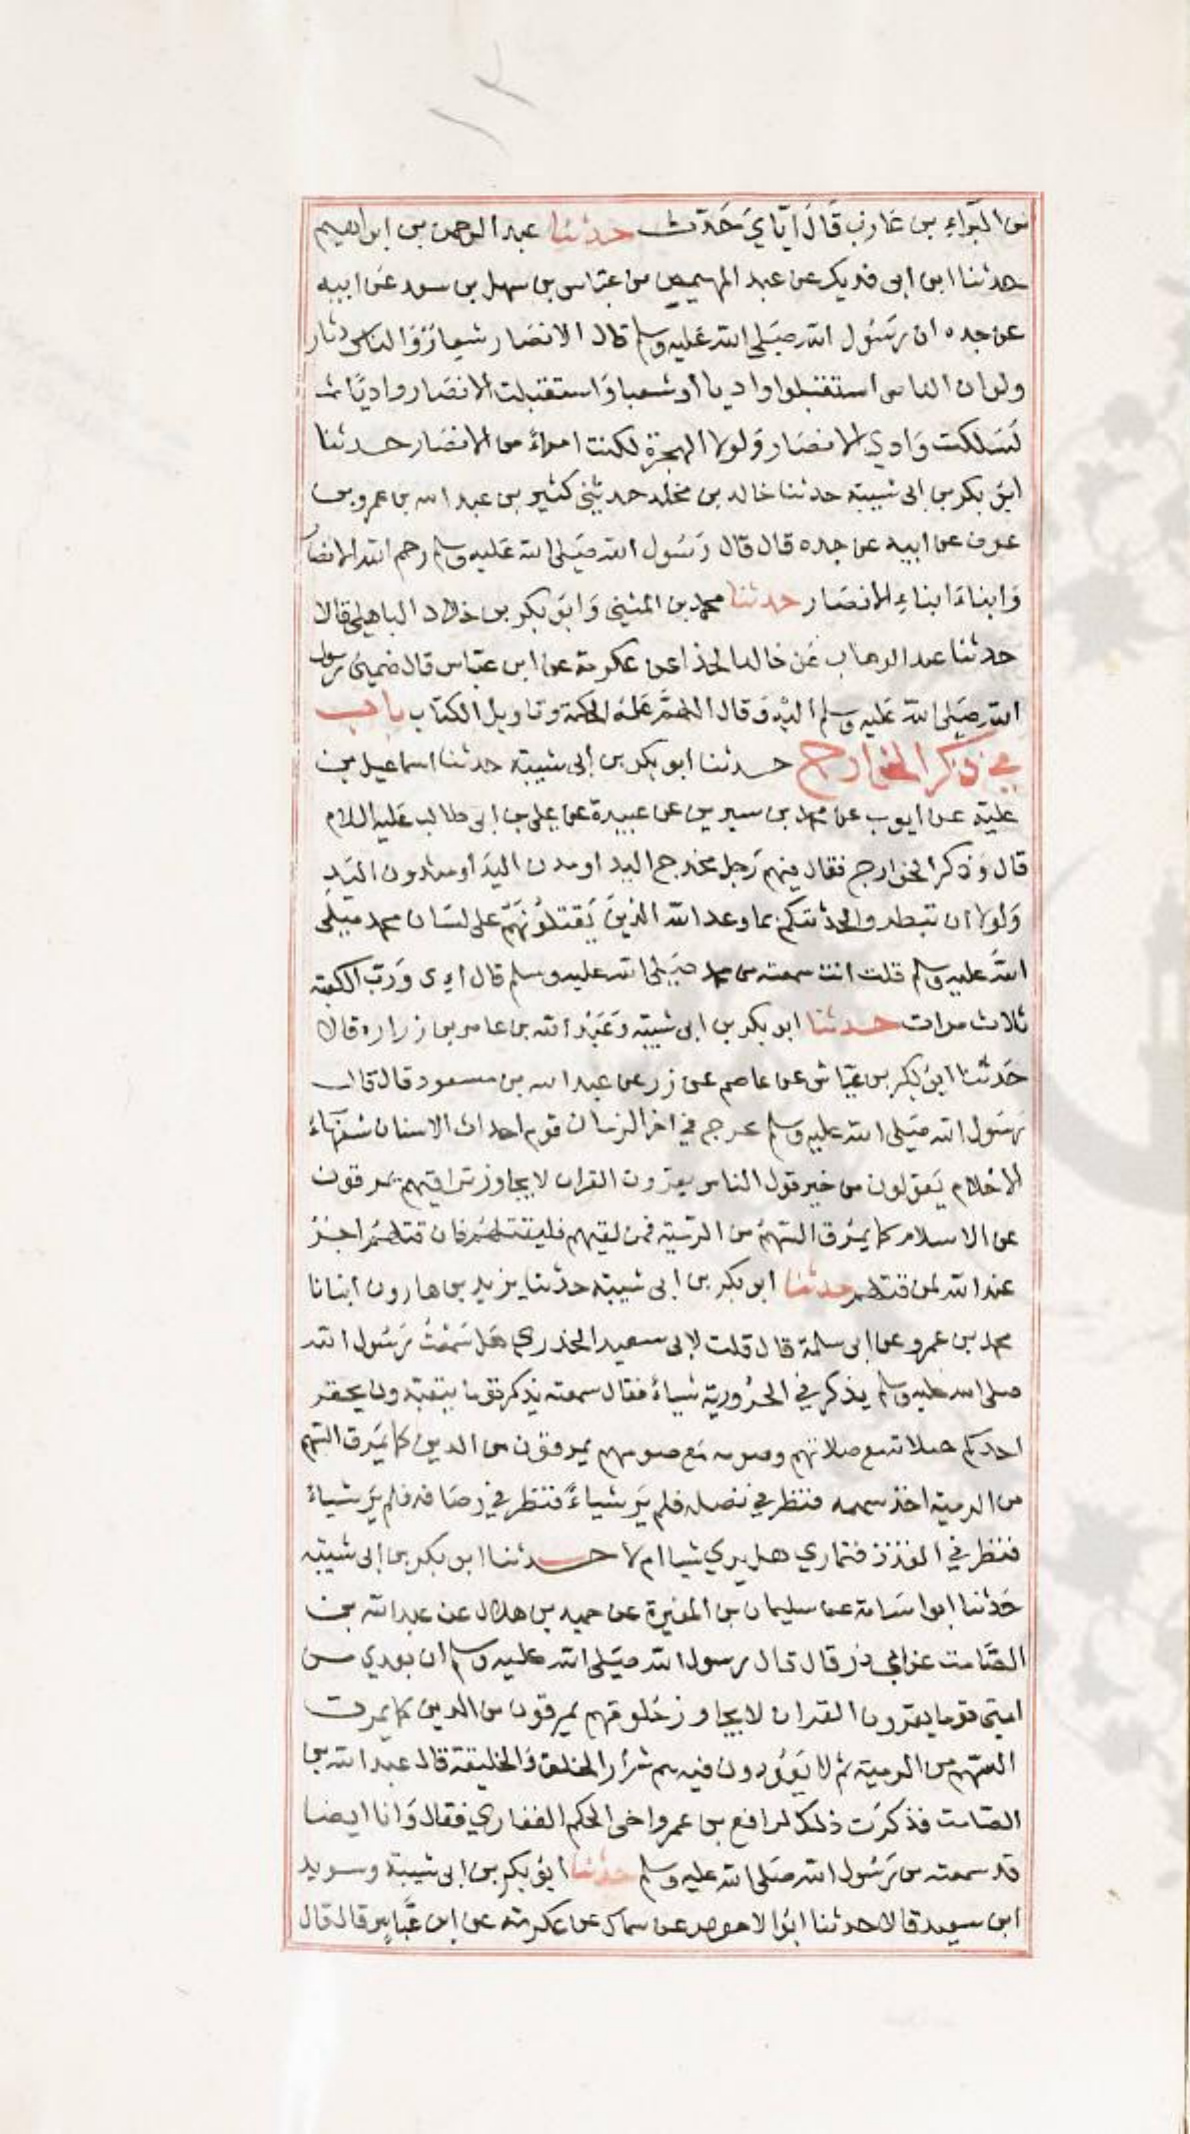 من البراء بن عازب قال اياي حدث حدثنا عبد الرحمن بن ابراهيم
حدثنا ابن ابى فديك عن عبد المهيمن بن عباس بن سهل بن سعد عن ابيه
عن جده ان رسول الله صلى الله عليه وسلم قال الانصار شعار والناس دثار
ولو ان الناس استقبلوا واديا أو شعبا واستقبلت الانصار واديا
لسلكت وادي الانصار ولولا الهجرة لكنت امراء من الانصار حدثنا
ابو بكر بن ابى شيبة حدثنا خالد بن مخلد حدثنى كثير بن عبد الله بن عمرو بن
عوف عن ابيه عن جده قال قال رسول الله صلى الله عليه وسلم رحم الله الانصار
وابناء ابناء الانصار حدثنا محمد بن المثنى وابو بكر بن خلاد الباهلى قالا
حدثنا عبد الوهاب عن خالد الحذا عن عكرمة عن ابن عباس قال ضمني رسول
الله صلى الله عليه وسلم اليه وقال اللهم علمه الحكمة وتاويل الكتاب باب
في ذكر الخوارج حدثنا ابو بكر بن ابى شيبة حدثنا اسماعيل بن
علية عن ايوب عن محمد بن سيرين عن عبيدة عن على بن ابى طالب عليه السلام
قال وذكر الخوارج فقال فيهم رجل مخدج اليد او مدن اليد او مثدون اليد
ولولا ان تبطروا لحدثتكم بما وعد الله الذين يقتلونهم على لسان محمد صلى
الله عليه وسلم قلت انت سمعته من محمد صلى الله عليه وسلم قال اى ورب الكعبة
ثلاث مرات حدثنا ابو بكر بن ابى شيبة وعبد الله بن عامر بن زراره قالا
حدثنا ابو بكر بن عياش عن عاصم عن زر عن عبد الله بن مسعود قال قال
رسول الله صلى الله عليه وسلم يخرج في اخر الزمان قوم احداث الاسنان سفهاء
الاحلام يقولون من خير قول الناس يقرون القران لا يجاوز تراقيهم يمرقون
عن الاسلام كما يمرق السهم من الرمية فمن لقيهم فليقتلهم فان قتلهم اجر
عند الله لمن قتلهم حدثنا ابو بكر بن ابى شيبة حدثنا يزيد بن هارون انبانا
محمد بن عمرو عن ابى سلمة قال قلت لابى سعيد الخدري هل سمعت رسول الله
صلى الله عليه وسلم يذكر في الحرورية شياء فقال سمعته يذكر قوما يتعبدون يحقر
احدكم صلاته مع صلاتهم وصومه مع صومهم يمرقون من الدين كما يمرق السهم
من الرمية اخذ سهمه فنظر في نصله فلم ير شياء فنظر في رصافه فلم ير شياء
فنظر في القذذ فتماري هل يري شيا ام لا حدثنا ابو بكر بن ابى شيبة
حدثنا ابو اسامة عن سليمان بن المغيرة عن حميد بن هلال عن عبد الله بن
الصامت عن ابي ذر قال قال رسول الله صلى الله عليه وسلم ان بعدي من
امتى قوما يقرون القران لا يجاوز حلوقهم يمرقون من الدين كما يمرق
السهم من الرمية ثم لا يعودون فيه هم شرار الخلق والخليقة قال عبد الله بن
الصامت فذكرت ذلك لرافع بن عمرو اخى الحكم الغفاري فقال وانا ايضا
قد سمعته من رسول الله صلى الله عليه وسلم حدثنا ابو بكر بن ابى شيبة وسويد
ابن سعيد قالا حدثنا ابو الاحوص عن سماك عن عكرمة عن ابن عباس قال قال